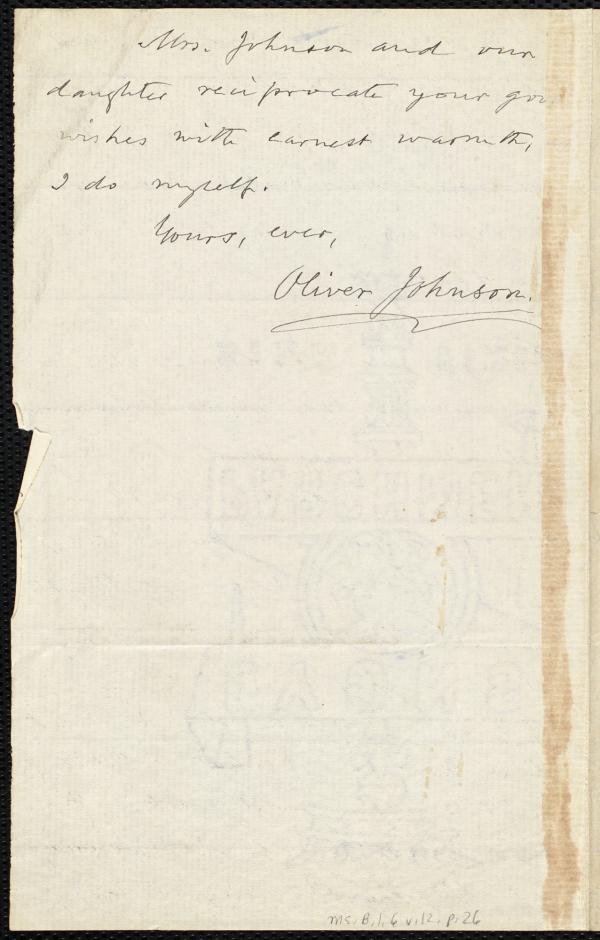 Mrs. Johnson and our
daughter reciprocate your goo
wishes with earnest warmth,
I do myself.
Yours, ever,
Oliver Johnson.
Ms. B.1.6 v.12, p.26